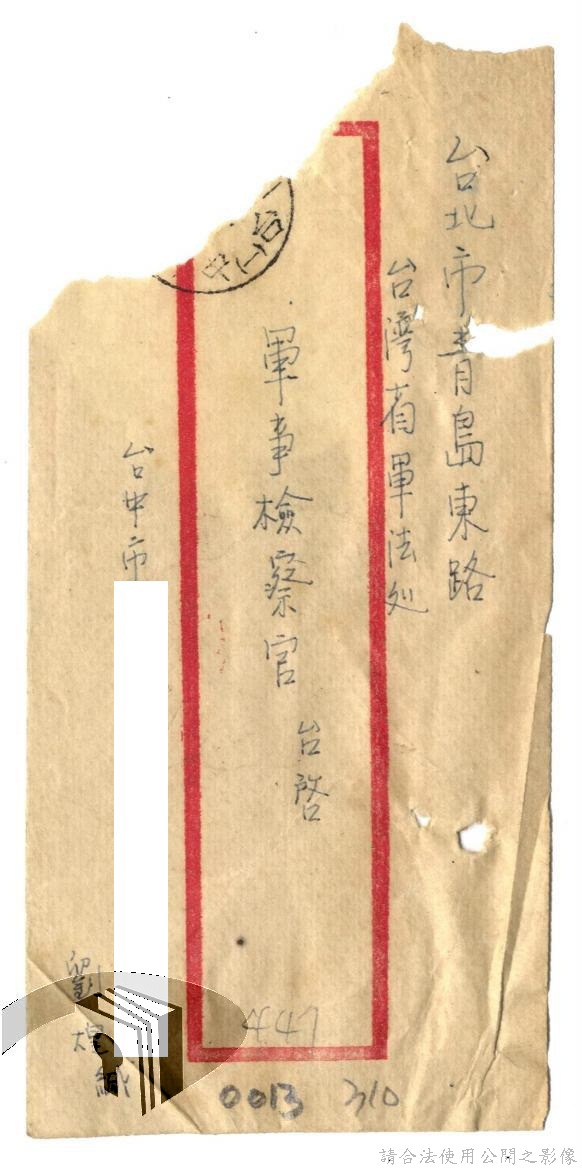 台北市青島東路
台灣省軍法处
軍事檢察官
台啓
台中市
劉煌緘
台中
0013
310
請合法使用公開之影像